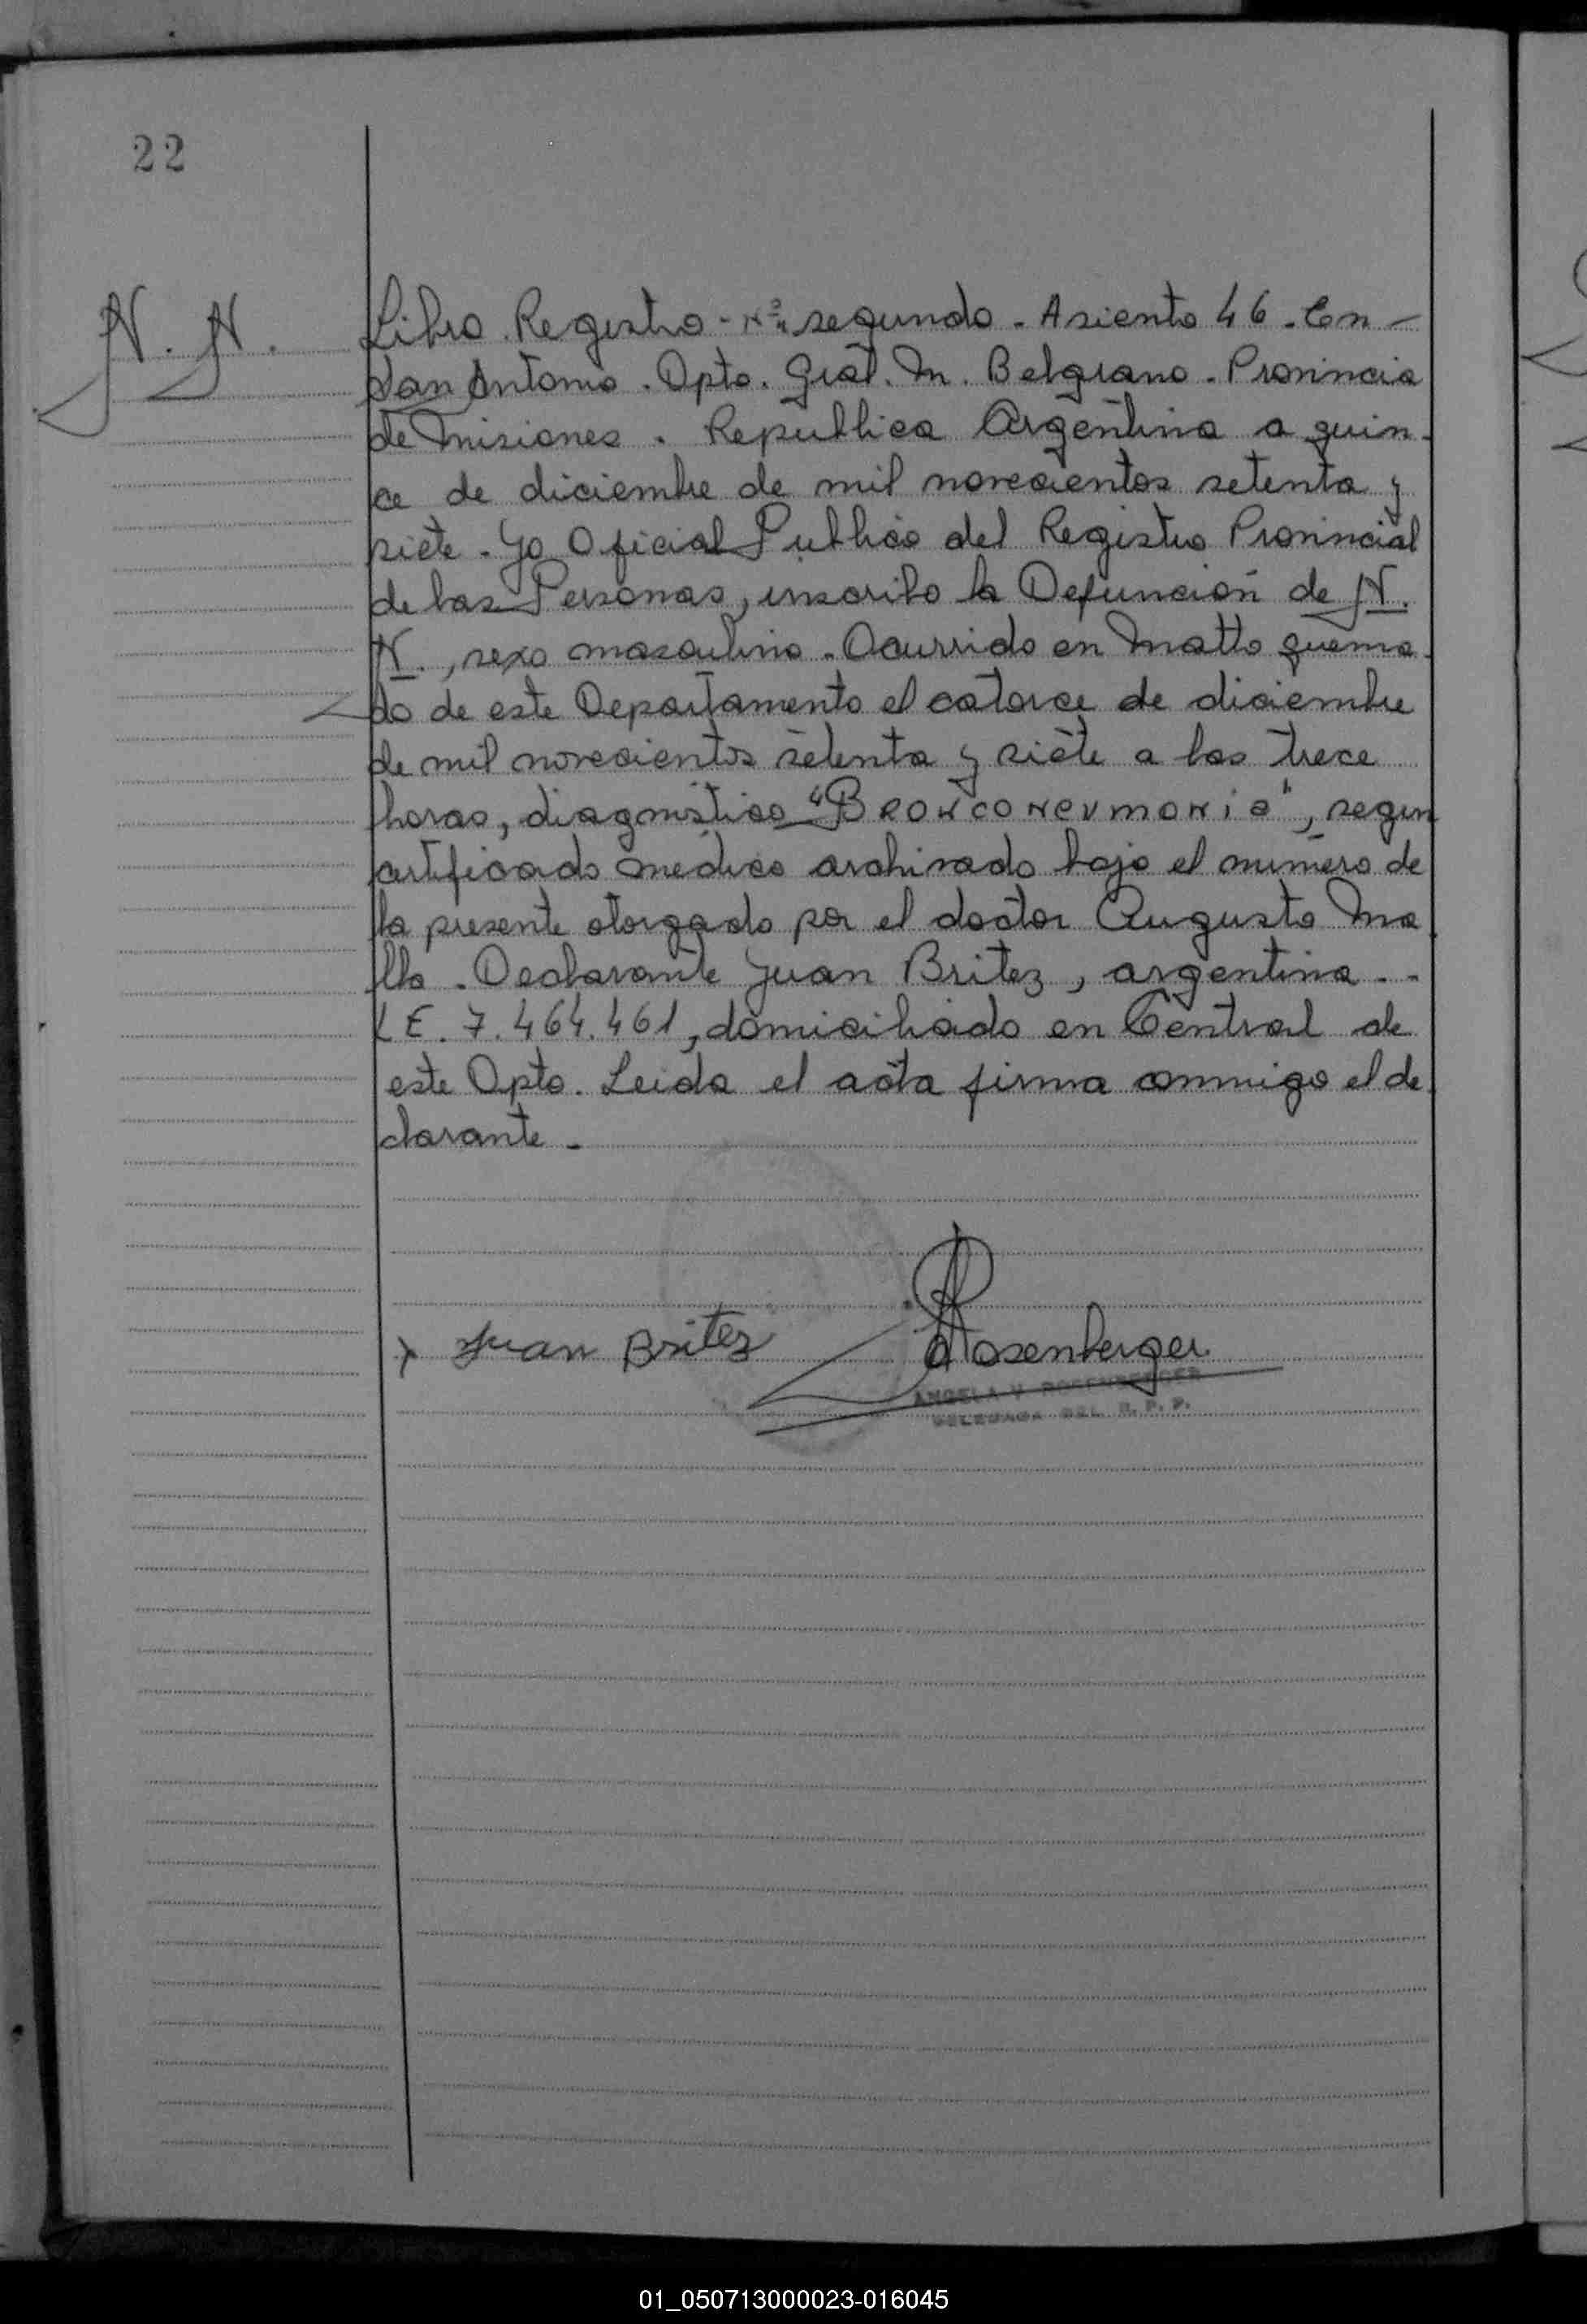 22
N. N.
Libro Registro - Nº segundo - Asiento 46 - En -
San Antonio . Dpto. Gral. M. Belgrano . Provincia
de Misiones . Republica Argentina a quin-
ce de diciembre de mil novecientos setenta y
siete . Yo Oficial Publico del Registro Provincial
de las Personas, inscribo la Defuncion de N.
N., sexo masculino . Ocurrido en Matto quema-
do de este Departamento el catorce de diciembre
de mil novecientos setenta y siete a las trece
horas, diagnostico "BRONCONEUMONIA", segun
certificado medico archivado bajo el numero de
la presente otorgado por el doctor Augusto Ma
lla . Declarante Juan Britez, argentina . -
L E . 7.464.461, domiciliado en Central de
este Dpto. Leida el acta firma conmigo el de
clarante -
Juan Britez
Rosenberger
ANGELA V ROSENBERGER
DELEGADA DEL R. P. P.
01_050713000023-016045